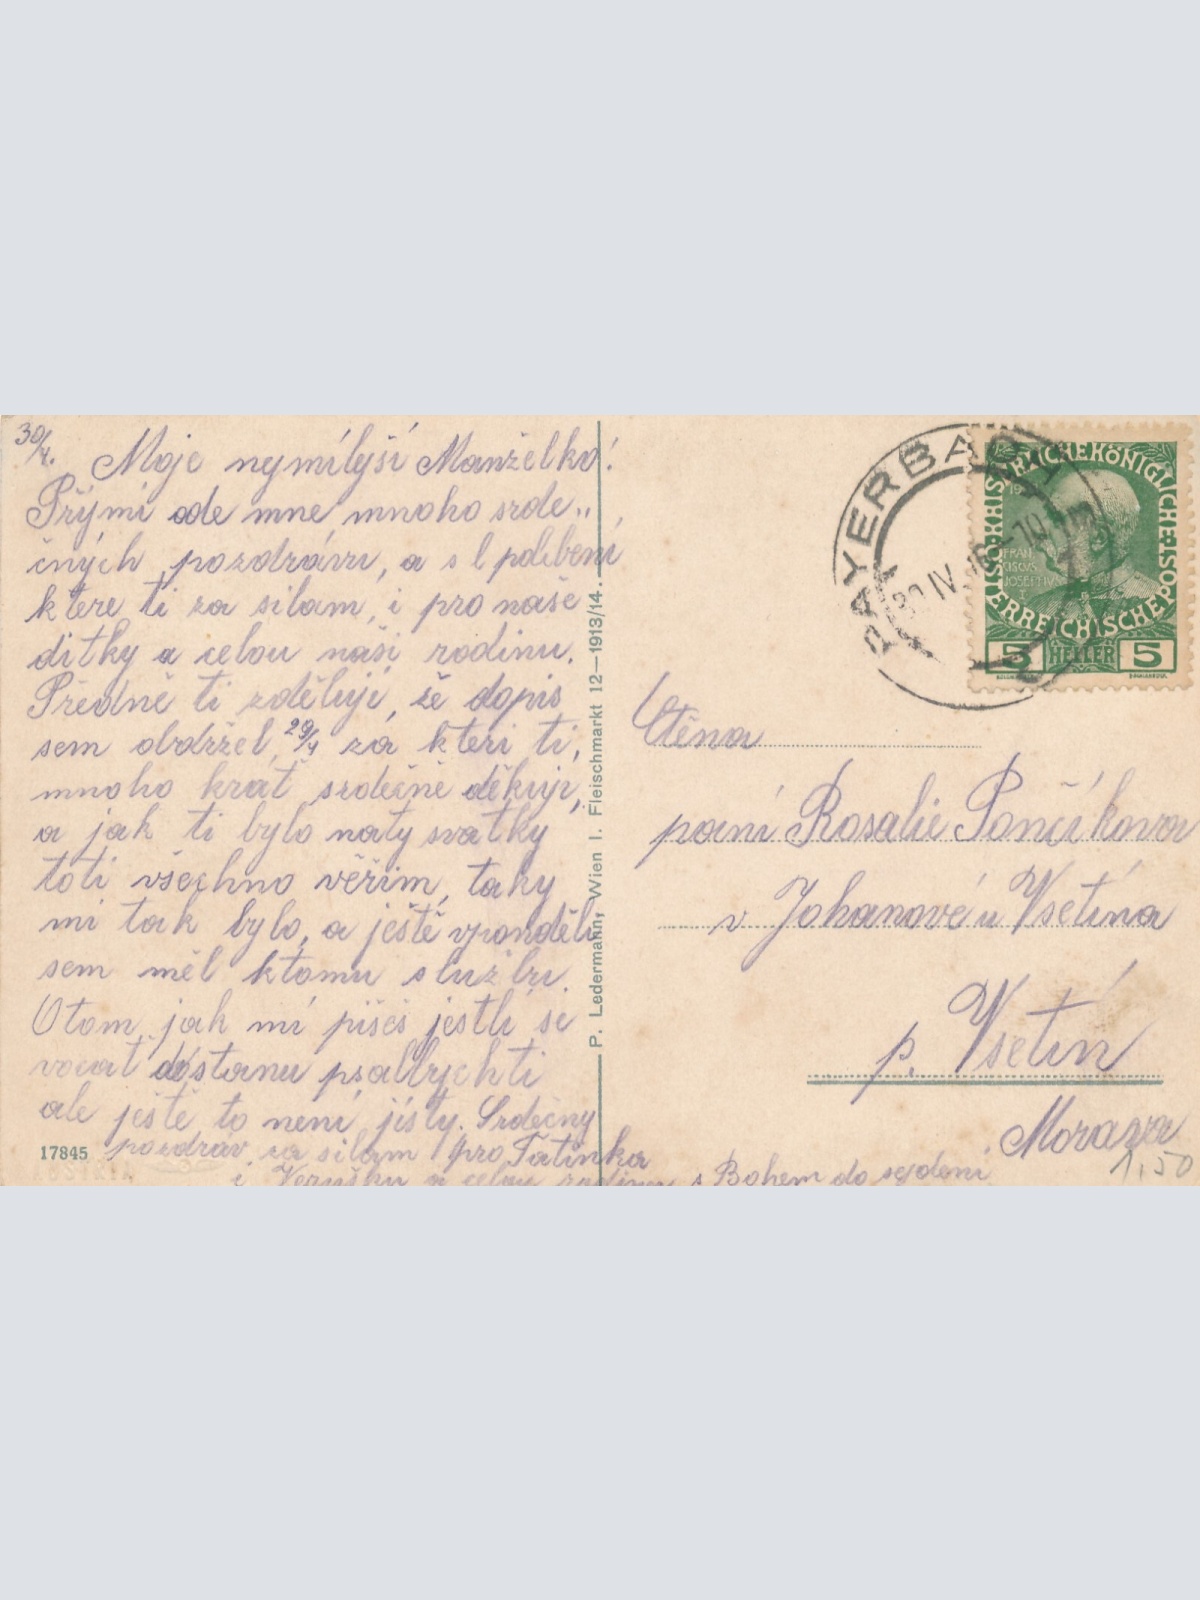 30/4.
Moje nymílejší Manželko!
Přými ode mne mnoho srde„
čných pozdravu, a s l políbení
ktere ti za silam, i pro naše
ditky a celou naší rodinu.
Předně ti zděluji, že dopis
sem obdržel, 29/4 za kteri ti,
mnoho krat srdečně děkuji,
a jak ti bylo naty svatky
toti všechno věřim, taky
mi tak bylo, a ještě vponděli
sem měl ktomu službu.
Otom, jak mí píšeš jestli se
dostanu
ale ještě to není jisty. Srdečny
pozdrav za silam pro Tatinka
i Verušku a celou rodinu s Bohem do sejdeni
17845
P. Ledermann, Wien I. Fleischmarkt 12—1913/14.
PAYERBACH
30 IV 16
KAISERLICHEKÖNIGLICHE ÖSTERREICHISCHE POST
FRAN
CISCVS
JOSEPHVS
5 HELLER 5
Ctěna
paní Rosalie Pončíkova
v Johanové u Vsetína
p. Vsetín
Morava
1,50